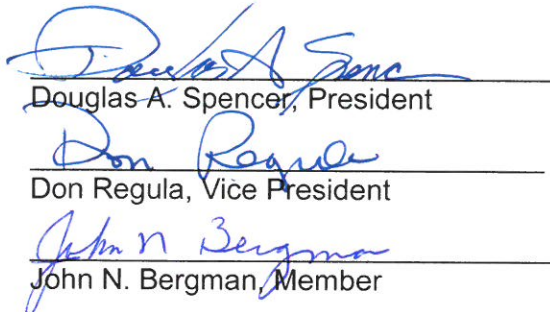 Douglas A Spencer
Douglas A. Spencer, President
Don Regula
Don Regula, Vice President
John N Bergman
John N. Bergman, Member